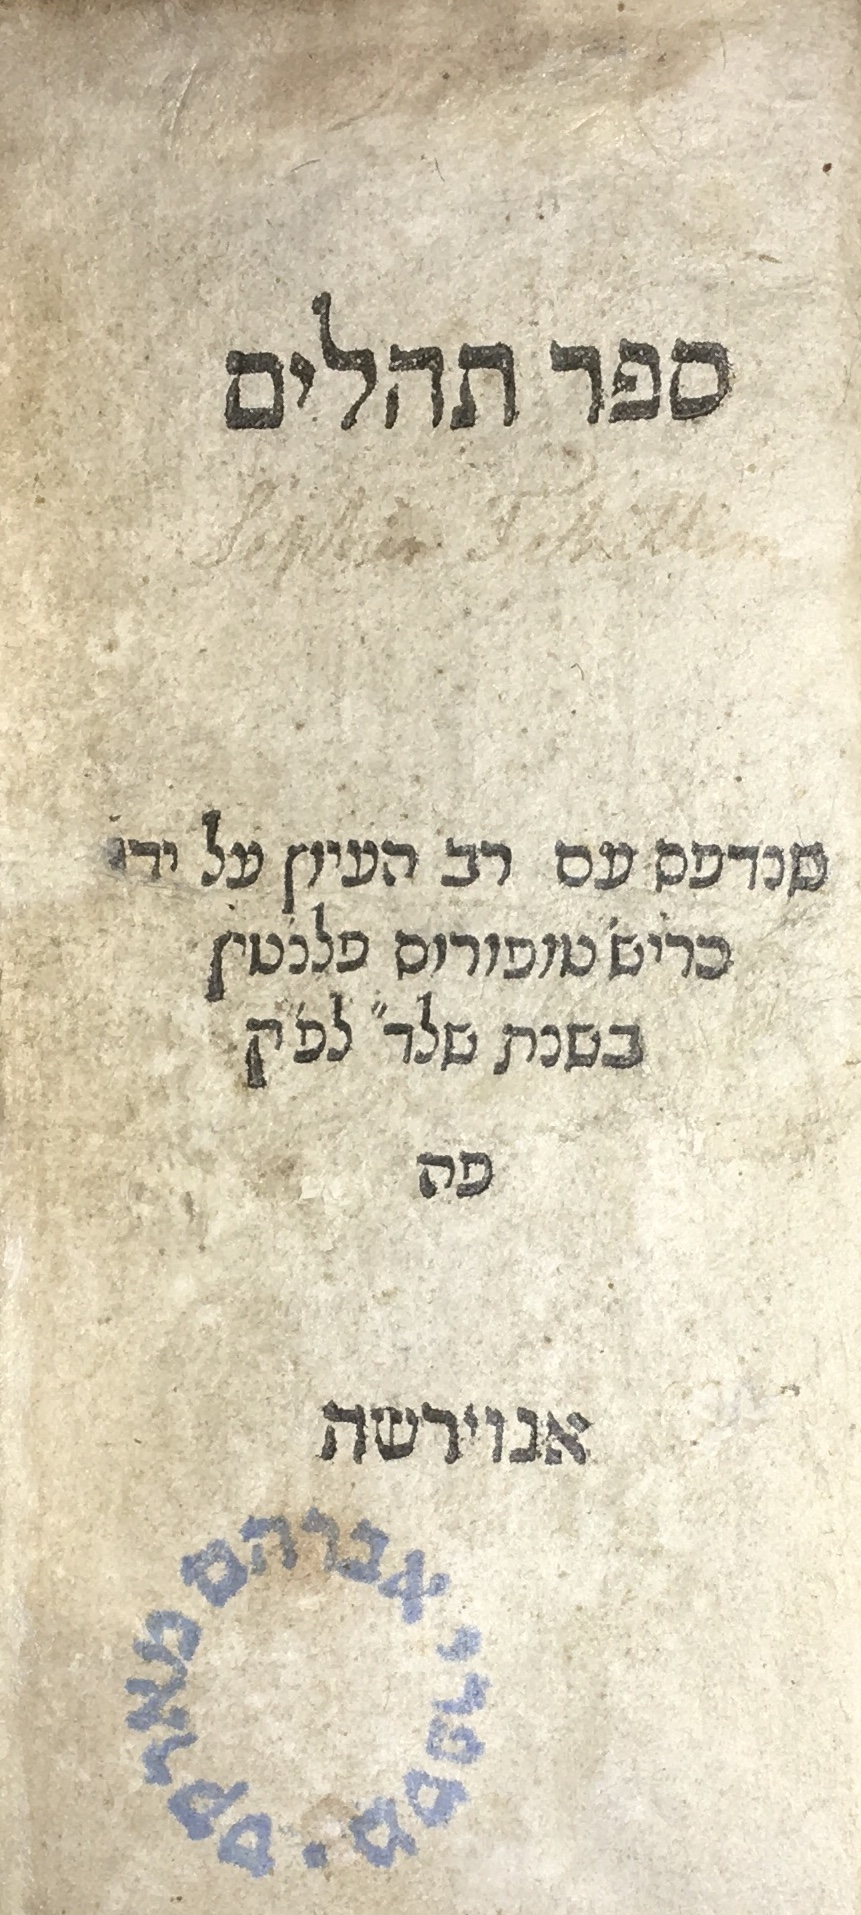 ספר תהלים
Sepher Tehillim
שנדפס עם רב העיון על ידי
כריש׳טופורוס פלנטין
בשנת של״ד לפ״ק
פה
אנוירשה
מספרי אברהם מארקס.